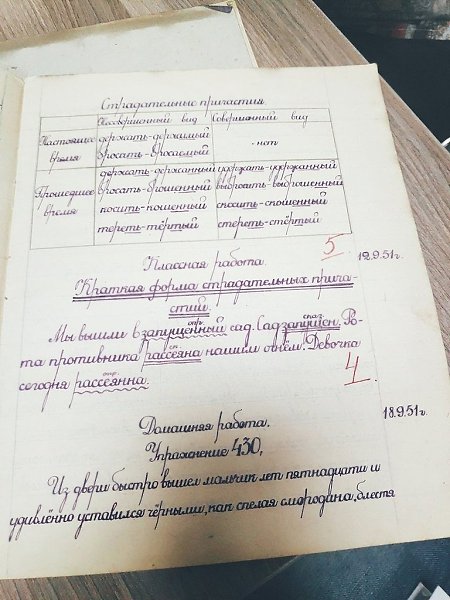 Страдательные причастия
Несовершенный вид Совершенный вид
Настоящее время держать-держимый нет
бросать-бросаемый
Прошедшее время держать-держанный удержать-удержанный
бросать-брошенный выбросить-выброшенный
косить-кошенный скосить-скошенный
тереть-тёртый стереть-стёртый
5
12.9.51г.
Классная работа.
Краткая форма страдательных прича-
стий.
опр. сказ.
Мы вышли в запущенный сад. Сад запущен. Ро-
та противника рассеяна нашим огнём. Девочка
сегодня рассеянна.
4.
18.9.51г.
Домашняя работа.
Упражнение 430,
Из двери быстро вышел мальчик лет пятнадцати и
удивлённо уставился чёрными, как спелая смородина, блестя